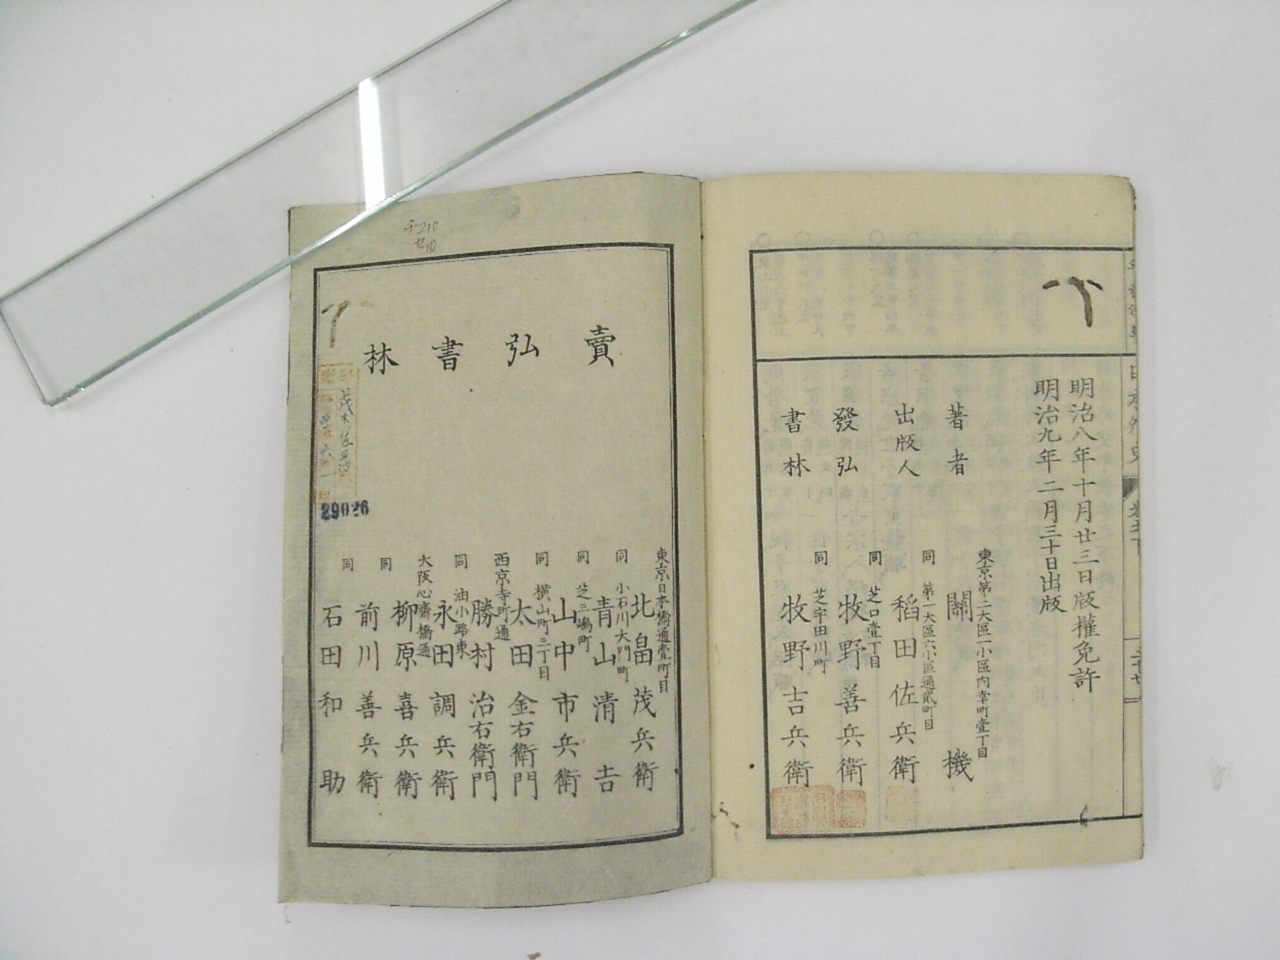 明治八年十月廿三日版權免許
明治九年二月三十日出版
東京第二大區一小區内幸町壹丁目
著者 關 機
同 第一大區六小區通貳町目
出版人 稻田佐兵衛
同 芝口壹丁目
發弘 牧野善兵衛
同 芝宇田川町
書林 牧野吉兵衛
賣弘書林
東京日本橋通壹町目
北畠茂兵衛
同 小石川大門町
青山清吉
同 芝三嶋町
山中市兵衛
同 横山町三丁目
太田金右衛門
西京寺町通
勝村治右衛門
同 油小路東
永田調兵衛
大阪心齋橋通
柳原喜兵衛
同 前川善兵衛
同 石田和助
210
29026